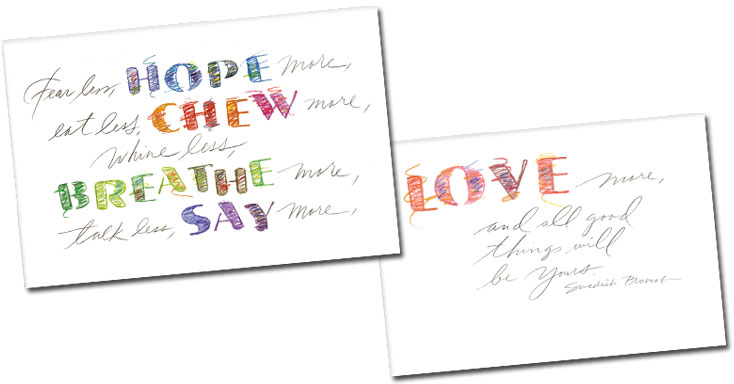 Fear less, HOPE more,
eat less, CHEW more,
Whine less,
BREATHE more,
talk less, SAY more,
LOVE more,
and all good
things will
be Yours.
Swedish Proverb